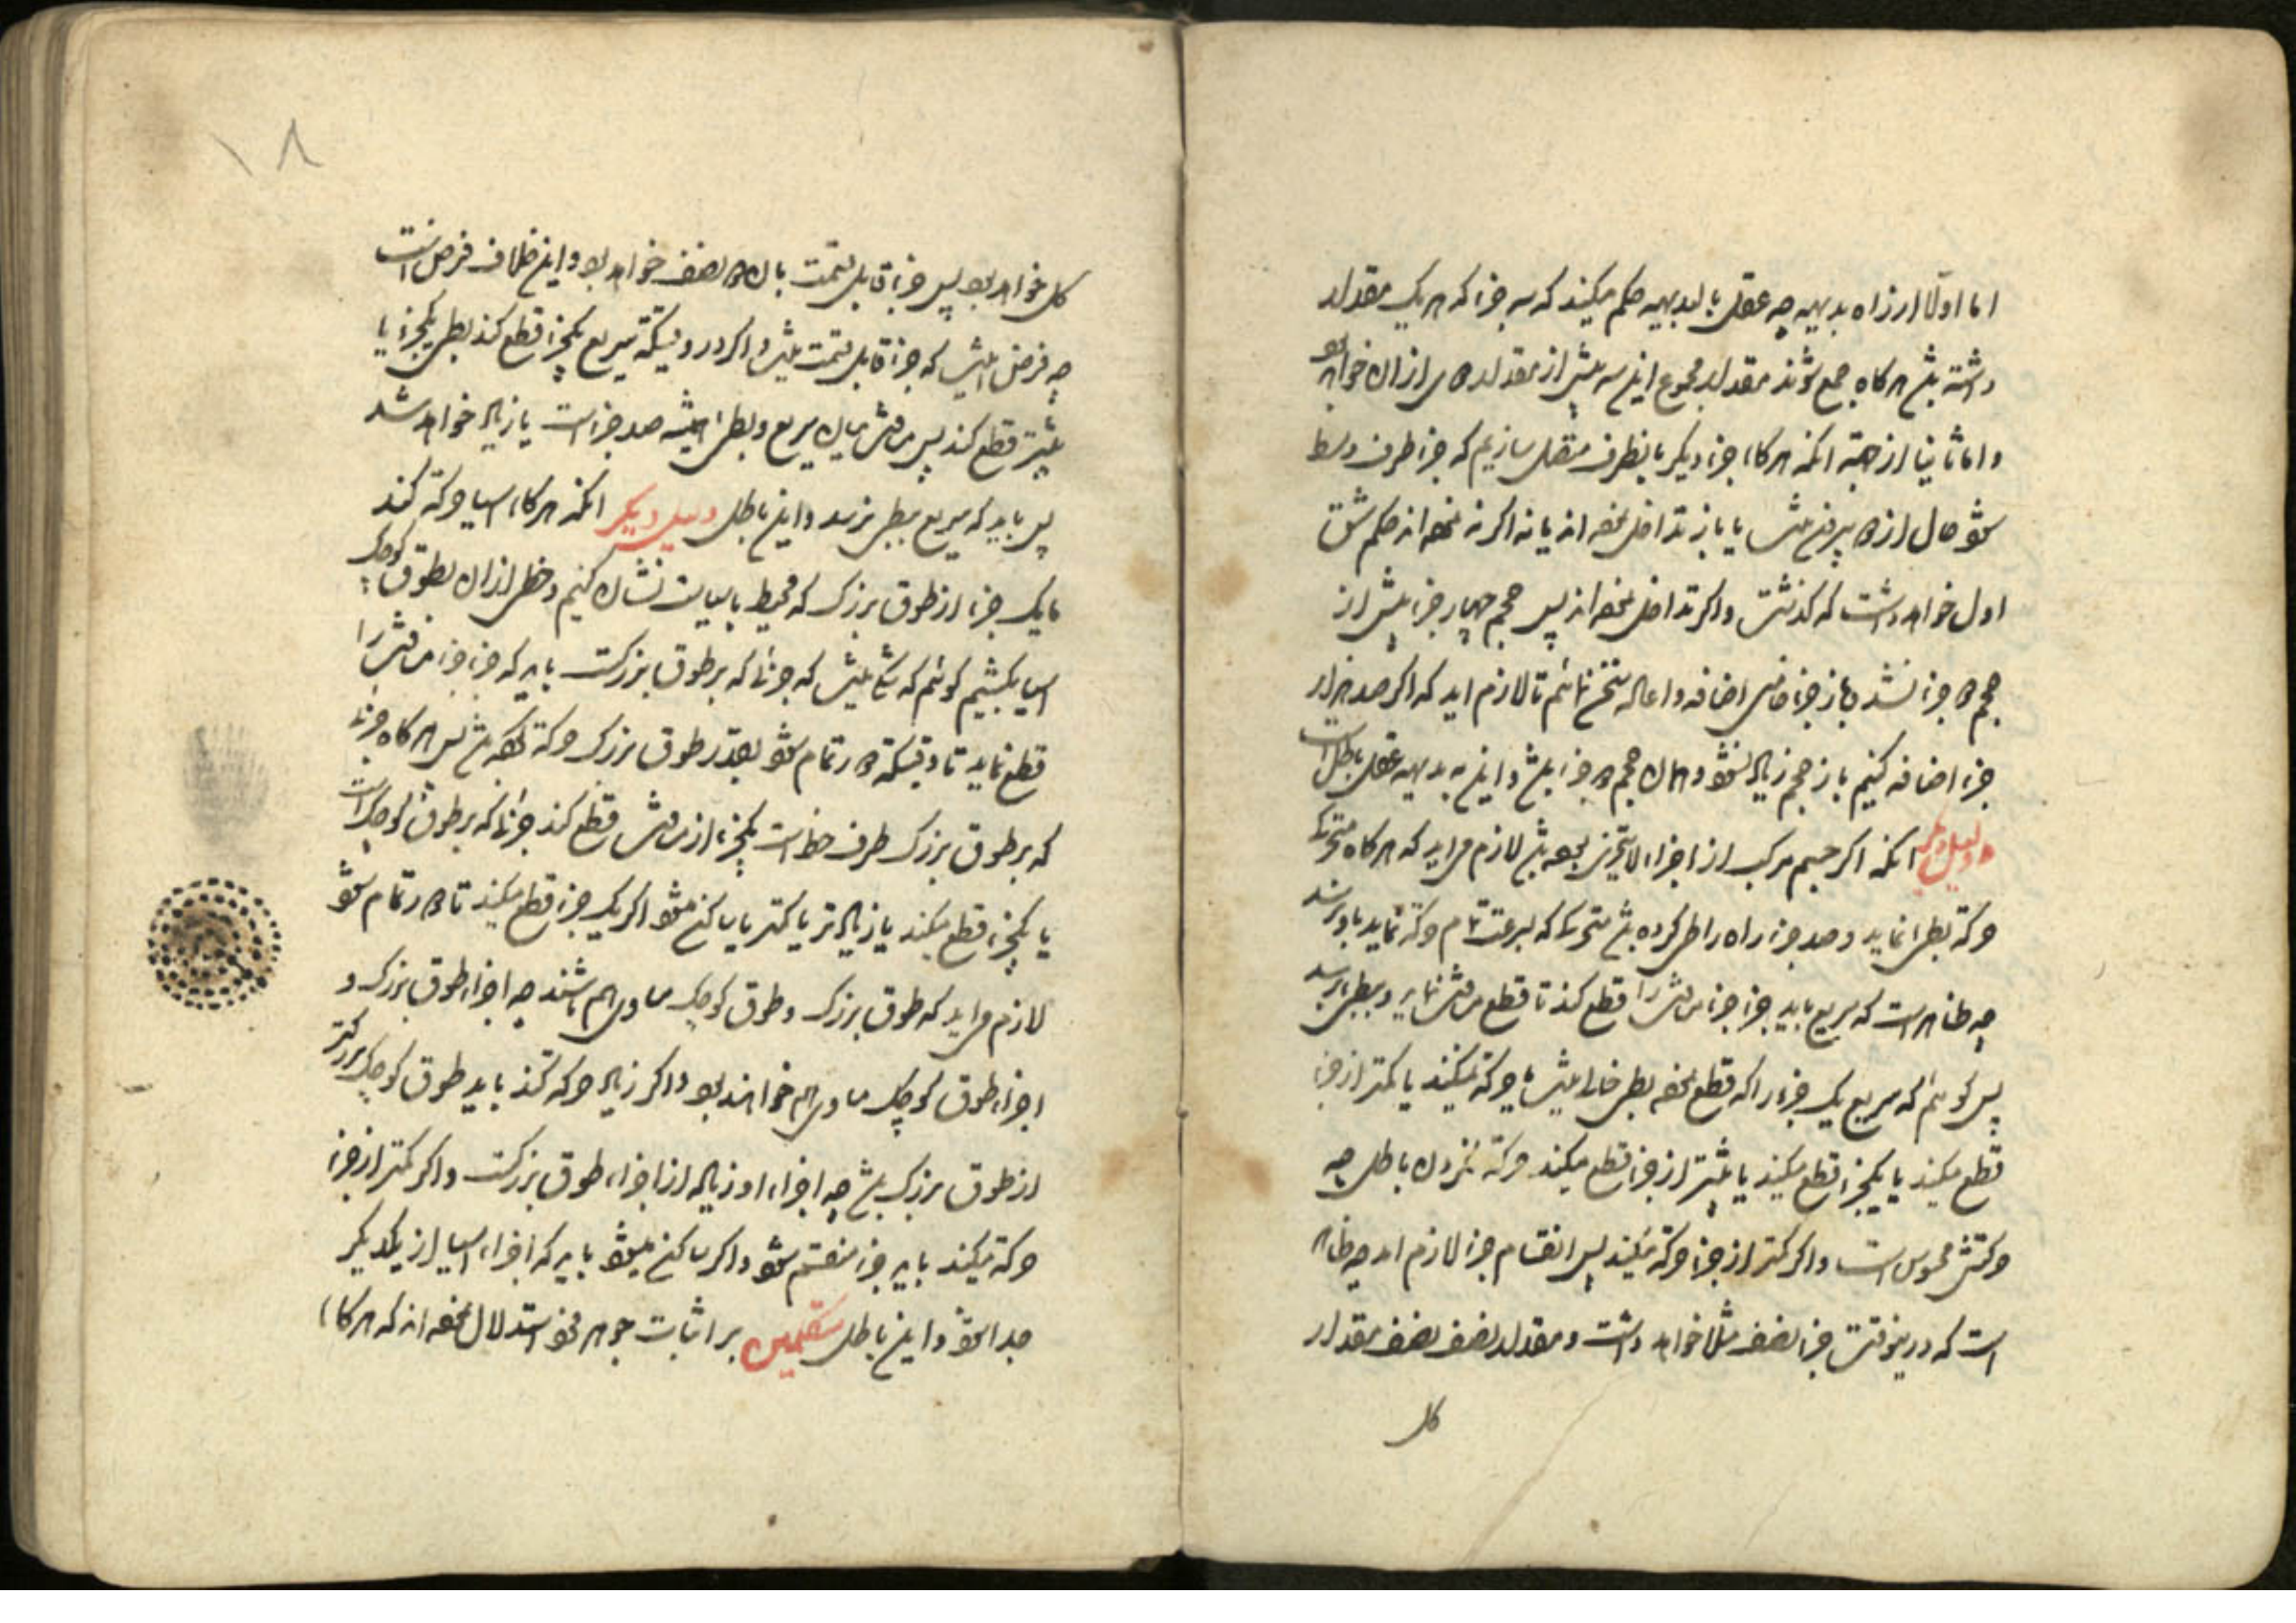 اما اولا از راه بدیهیه چه عقل بالبدیهیه حکم میکند که سه جزء که هر یک مقدار
داشته باشد هرگاه جمع شوند مقدار مجموع این سه بیش از مقدار از آن خواهد بود
و اما ثانیا از جهته آنکه هرگاه جزء دیگر باینطرف متصل سازیم که جزء طرف وسط
شود حال از بیرون باشد یا باز تداخل نموده اند یا نه اگر نه نموده اند حکم شق
اول خواهد داشت که گذشت و اگر تداخل نموده اند پس حجم چهار جزء بیش از
حجم جزء نشد و باز جزء خامس اضافه و اعاده سخن نمائیم تا لازم اید که اگر صد هزار
جزء اضافه کنیم باز حجم زیاده نشود و همان حجم جزء باشد و این به بدیهه عقل باطل است
دلیل دیگر انکه اگر جسم مرکب از اجزاء لایتجزی بوده باشد لازم می اید که هرگاه متحرک
حرکة بطئ نماید و صد جزء راه را طی کرده باشد متحرک که بسرعت تمام حرکة نماید باو نرسد
چه ظاهر است که سریع باید جزء جزء مسافتش را قطع کند تا قطع مسافتش نماید و ببطئ برسد
پس گوئیم که سریع یک جزء را که قطع نموده بطئ خالی نیست یا حرکة نمیکند یا کمتر از جزء
قطع میکند یا یکجزء قطع میکند یا بیشتر از جزء قطع میکند حرکة نکردن باطل چه
حرکتش محسوس است و اگر کمتر از جزء حرکة میکند پس انقسام جزء لازم امد چه ظاهر
است که درینوقت جزء نصف مثلا خواهد داشت و مقدار نصف نصف مقدار
کل
۱۸
کل خواهد بود پس جزء قابل قسمت بان نصف خواهد بود و این خلاف فرض است
چه فرض اینست که جزء قابل قسمت نیست و اگر در وقتیکه سریع یکجزء قطع کند بطئ یکجزء یا
بیشتر قطع کند پس مسافتش میان سریع و بطئ همیشه صد جزء است یا زیاده خواهد شد
پس باید که سریع ببطئ نرسد و این باطل دلیل دیگر انکه هرگاه اسیا حرکة کند
ما یک جزء از طوق بزرگ که محیط باسیاست نشان کنیم و خطی از ان بطوق کوچک
اسیا بکشیم گوئیم که شک نیست که جزئی که بر طوق بزرگست باید که جزء جزء مسافتش را
قطع نماید تا وقتیکه تمام شود بقدر طوق بزرگ حرکة کرده باشد پس هرگاه جزئی
که بر طوق بزرگ طرف خط است یکجزء از مسافتش قطع کند جزئی که بر طوق کوچک است
یا یکجزء قطع میکند یا زیاده تر یا کمتر یا ساکن میشود اگر یک جزء قطع میکند تا تمام شود
لازم می اید که طوق بزرگ و طوق کوچک مساوی هم باشند چه اجزاء طوق بزرگ و
اجزاء طوق کوچک مساوی هم خواهند بود و اگر زیاده حرکة کند باید طوق کوچک بزرگتر
از طوق بزرگ باشد چه اجزاء او زیاده از اجزاء طوق بزرگست و اگر کمتر از جزء
حرکة میکند باید جزء منقسم شود و اگر ساکن میشود باید که اجزاء اسیا از یکدیگر
جدا شود و این باطل متکلمین بر اثبات جوهر فرد استدلال نموده اند که هرگاه